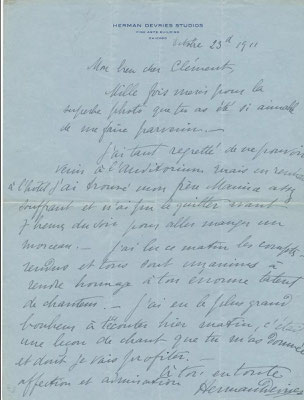 HERMAN DEVRIES STUDIOS
FINE ARTS BUILDING
CHICAGO
Octobre 23th 1911
Mon bien cher Clément
Mille fois merci pour la
superbe photo que tu as été si aimable
de me faire parvenir.—
J'ai tant regretté de ne pouvoir
venir à l'Auditorium mais en
à l'hotel j'ai trouvé mon père Maurice assez
souffrant et n'ai pu le quitter avant
7 heures du soir pour aller manger un
morceau.— J'ai lu ce matin les comptes-
rendus et tous sont unanimes à
rendre hommage à ton énorme talent
de chanteur.— J'ai eu le plus grand
bonheur à t'écouter hier matin, c'était
une leçon de chant que tu m'as donnée
et dont je vais profiter.—
à toi en toute
affection et admiration
Herman Devries